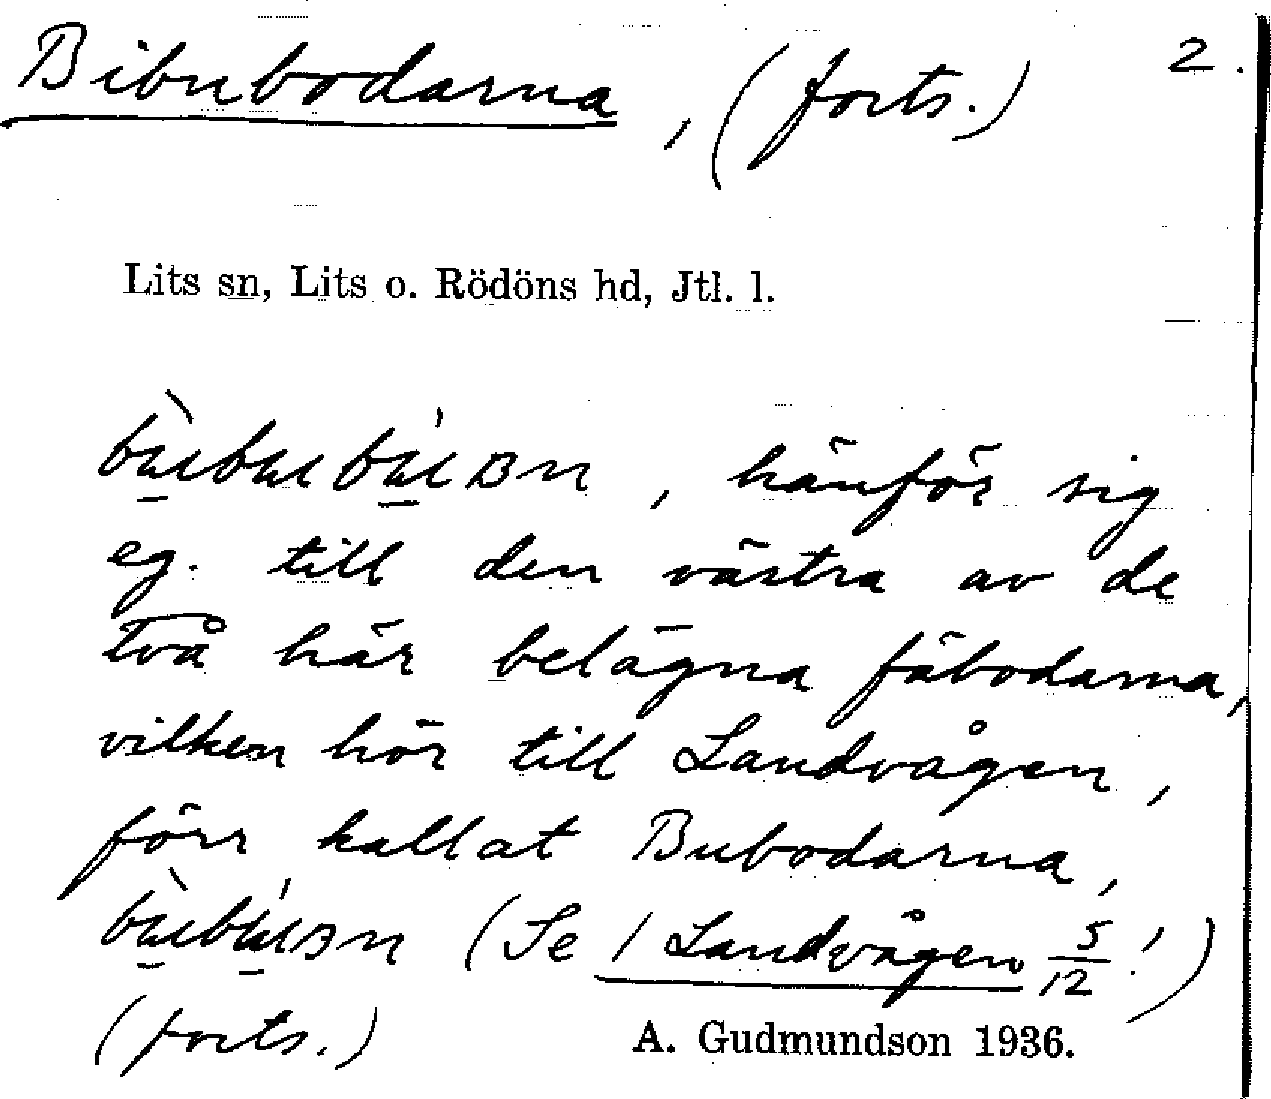 Bibubodarna, (forts.) 2.
Lits sn, Lits o. Rödöns hd, Jtl. l.
, hänför sig
eg. till den västra av de
två här belägna fäbodarna,
vilken hör till Landvågen,
förr kallat Bubodarna,
(Se / Landvågen 5/12!)
(forts.)
A. Gudmundson 1936.